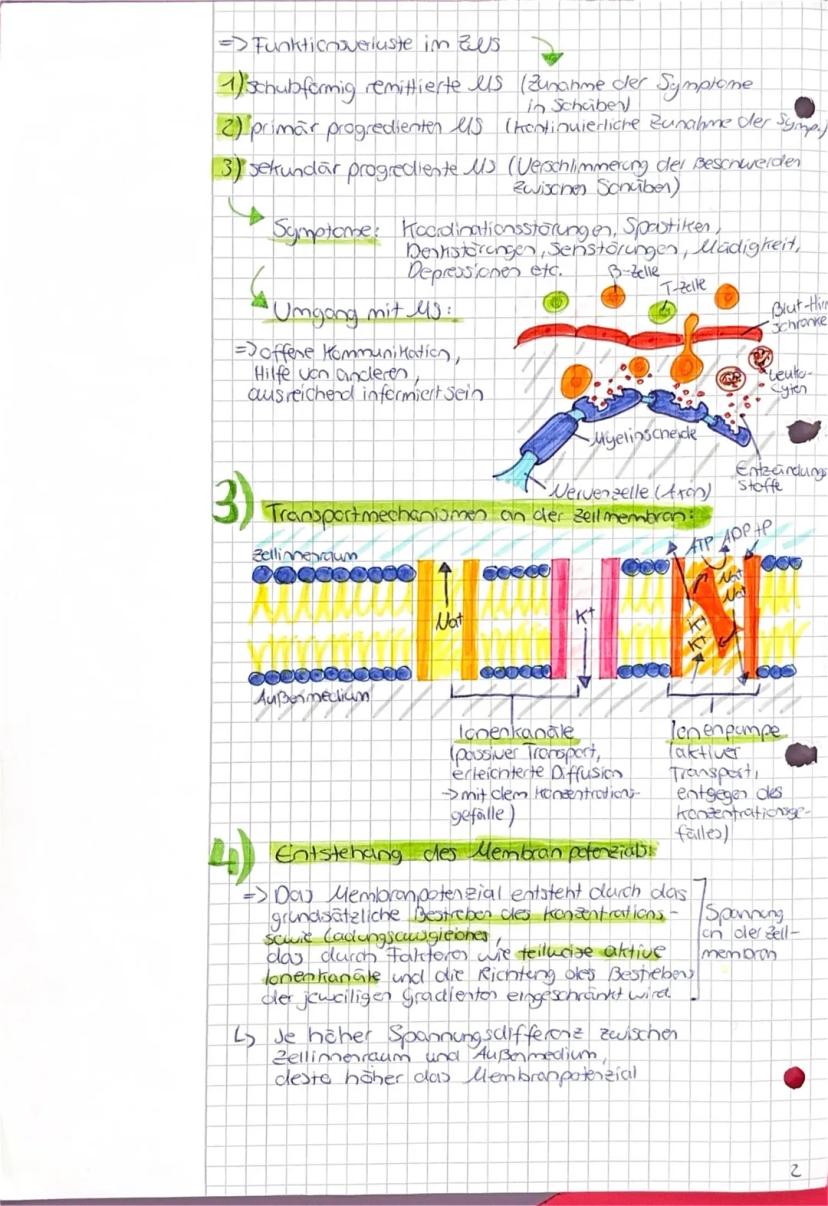 => Funktionsverluste im ZNS
1) schubförmig remittierte MS (Zunahme der Symptome
in Schüben)
2) primär progredienten MS (kontinuierliche Zunahme der Symp.)
3) sekundär progrediente MS (Verschlimmerung der Beschwerden
zwischen Schüben)
Symptome: Koordinationsstörungen, Spastiken,
Denkstörungen, Sehstörungen, Müdigkeit,
Depressionen etc.
B-Zelle
T-Zelle
Umgang mit MS:
Blut-Hirn
schranke
=> offene Kommunikation,
Hilfe von anderen,
ausreichend informiert sein
Leuko-
zyten
Myelinscheide
Entzündungs
stoffe
Nervenzelle (Axon)
3) Transportmechanismen an der Zellmembran:
Zellinnenraum
ATP ADP+P
Na+
Na+
Na+
K+
K+
K+
Außenmedium
Ionenkanäle
(passiver Transport,
erleichterte Diffusion
-> mit dem Konzentrations-
gefälle)
Ionenpumpe
(aktiver
Transport,
entgegen des
Konzentrationsge-
fälles)
4) Entstehung des Membranpotenzials:
=> Das Membranpotenzial entsteht durch das
grundsätzliche Bestreben des Konzentrations-
sowie Ladungsausgleiches,
das durch Faktoren wie teilweise aktive
Ionenkanäle und die Richtung des Bestrebens
der jeweiligen Gradienten eingeschränkt wird.
Spannung
an der Zell-
membran
↳ Je höher Spannungsdifferenz zwischen
Zellinnenraum und Außenmedium,
desto höher das Membranpotenzial
2